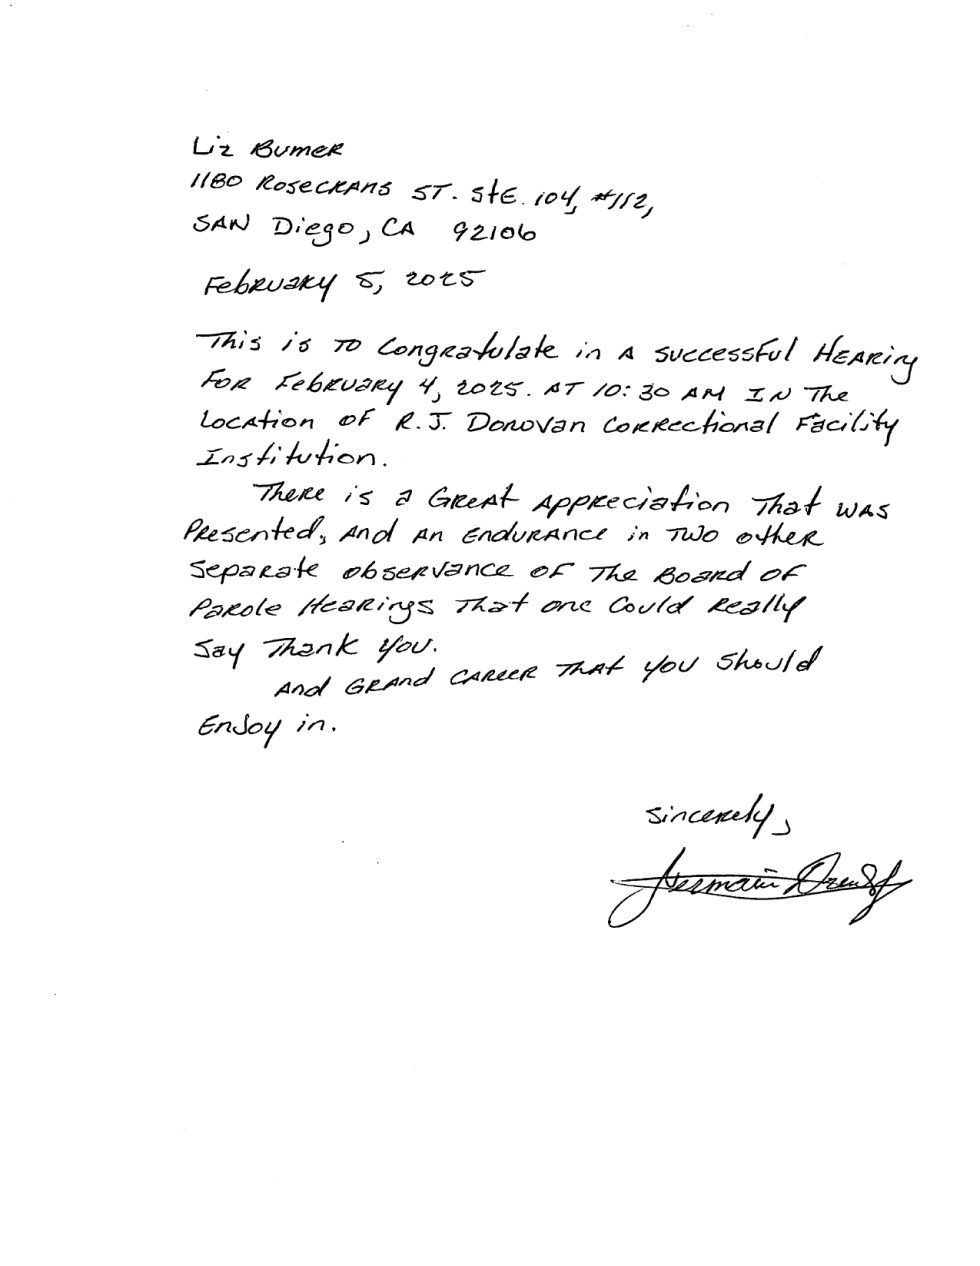 Liz Bumer
1180 Rosecrans ST. Ste. 104, #112,
San Diego, CA 92106
February 5, 2025
This is to Congratulate in a successful Hearing
For February 4, 2025. AT 10:30 AM IN The
Location of R.J. Donovan Correctional Facility
Institution.
There is a Great Appreciation That was
Presented, And An Endurance in Two other
Separate observance of The Board of
Parole Hearings That one Could Really
Say Thank You.
And Grand Career That you Should
Enjoy in.
Sincerely,